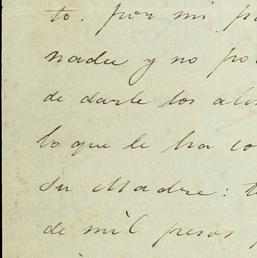 to. por mi pa
nadie y no po
de darle los ali
lo que le ha co
su Madre: te
de mil pesos